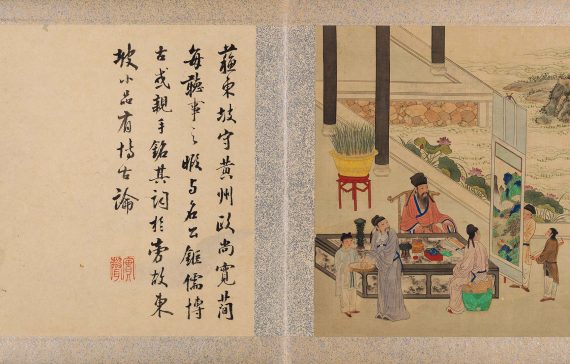 蘓東坡守黄州政尚寬簡
每聽事之暇与名公鉅儒博
古或親手銘其詞於旁故東
坡小品有博古論